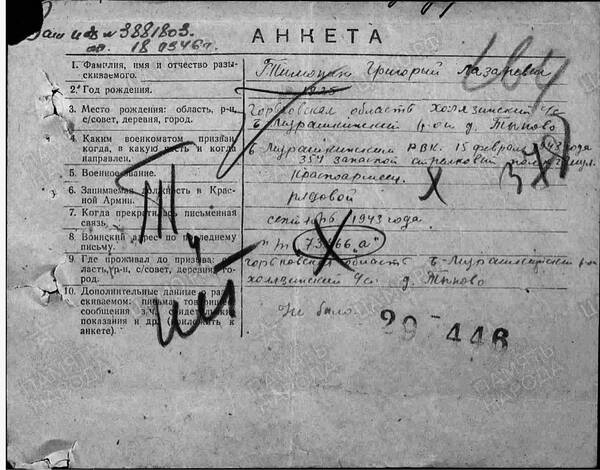 Ваш исх № 3881803.
от. 18 0346 г.
АНКЕТА
1. Фамилия, имя и отчество разыскиваемого.
Тимонин Григорий Лазаревич
2. Год рождения.
1925
3. Место рождения: область, р-н, с/совет, деревня, город.
Горьковская область Холязинский с/с
Б-Мурашкинский р-он д. Тыново
4. Каким военкоматом призван, когда, в какую часть и когда направлен.
Б-Мурашкинским РВК. 15 феврал 1943 года
354 запасной стрелковый полк
5. Военное звание.
Красноармеец
6. Занимаемая должность в Красной Армии.
рядовой
7. Когда прекратилась письменная связь.
сентябрь 1943 года.
8. Воинский адрес по последнему письму.
п/п 73766 "а"
9. Где проживал до призыва: область, р-н, с/совет, деревня, город.
Горьковская область Б-Мурашкинский р-он
Холязинский с/с. д. Тыново
10. Дополнительные данные о разыскиваемом: письма товарищей, сообщения з/ч, свидетельские показания и др. (приложить к анкете).
Не было
29-446
нет
ПАМЯТЬ НАРОДА